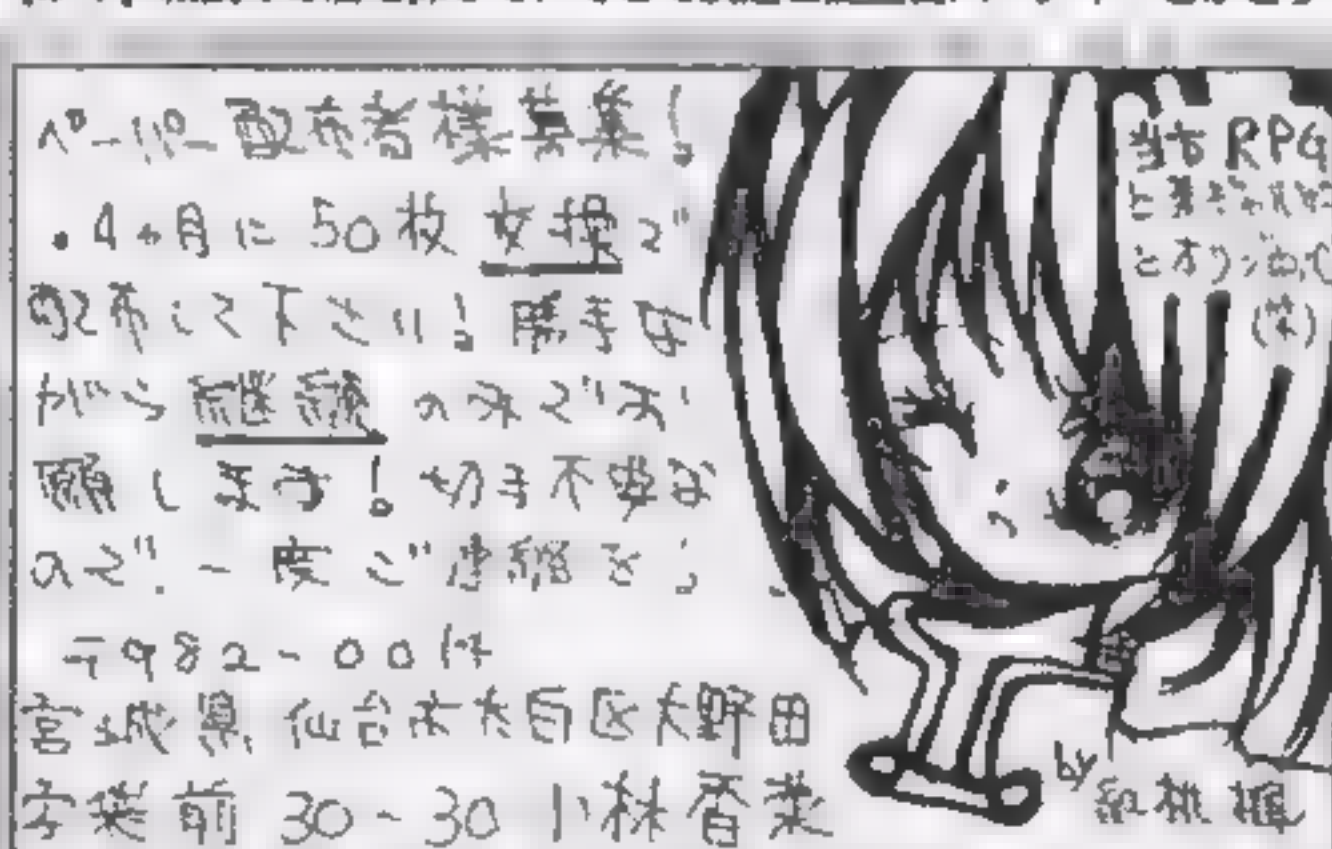 ペーパー配布者様募集!
・4ヶ月に50枚 支援で
配布して下さい!勝手な
がら継続のみでお
願します!切手不要な
ので!一度ご連絡を!
〒982-0014
宮城県仙台市太白区大野田
字袋前30-30 小林香菜
当方RPG
とオリジ
(笑)
by
紅桃